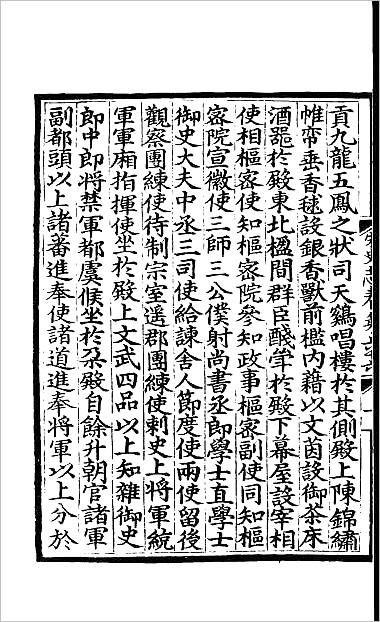 貢九龍五鳳之狀司天鷄唱樓於其側殿上陳錦繡
帷帟垂香毬設銀香獸前檻內藉以文茵設御茶床
酒器於殿東北楹間群臣醆斝於殿下幕屋設宰相
使相樞密使知樞密院參知政事樞密副使同知樞
密院宣徽使三師三公僕射尚書丞郎學士直學士
御史大夫中丞三司使給諫舍人節度使兩使留後
觀察團練使待制宗室遥郡團練使刺史上將軍統
軍軍廂指揮使坐於殿上文武四品以上知雜御史
郎中郎將禁軍都虞候坐於朶殿自餘升朝官諸軍
副都頭以上諸蕃進奉使諸道進奉將軍以上分於